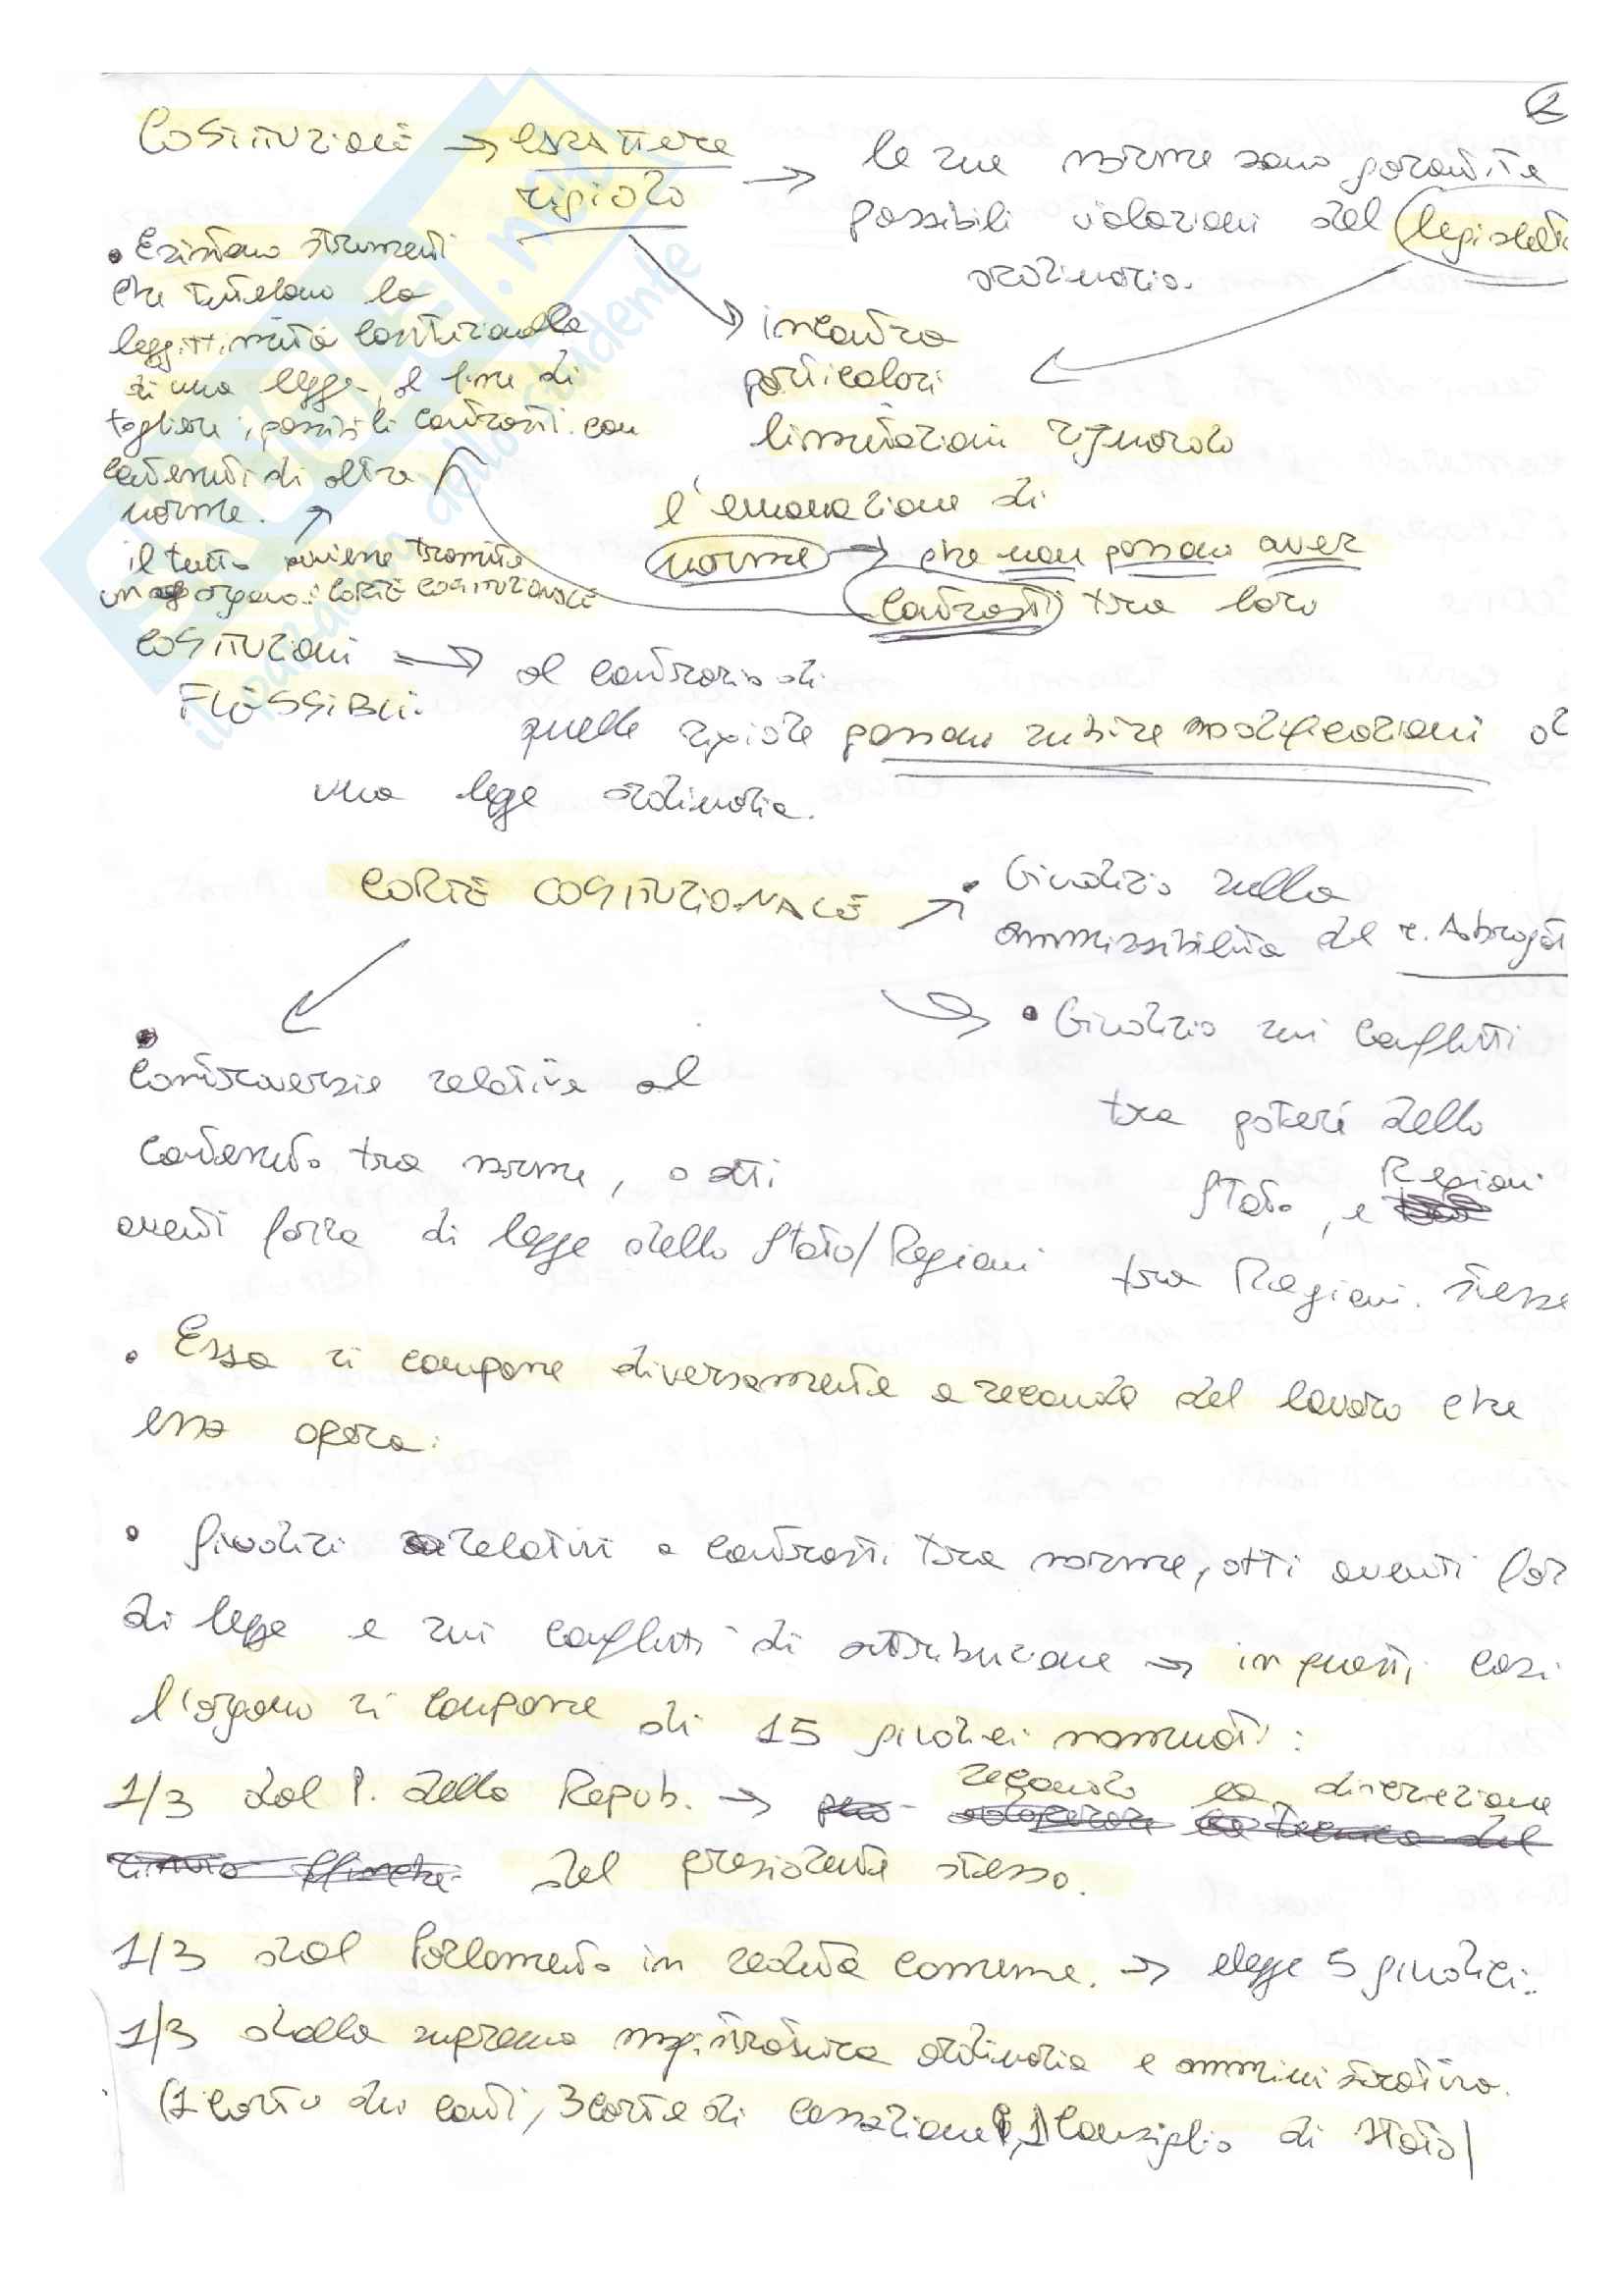 2
COSTITUZIONE → CARATTERE
RIGIDO
→ le sue norme sono garantite
possibili violazioni del legislati
ordinario.
• Esistono strumenti
che tutelano la
legittimità costituzionale
di una legge, al fine di
togliere i possibili contrasti con
contenuti di altre
norme.
il tutto avviene tramite
un organo: CORTE COSTITUZIONALE
incontra
particolari
limitazioni riguardo
l'emanazione di
norme → che non possono aver
contrasti tra loro
COSTITUZIONI
FLESSIBILI:
→ al contrario di
quelle rigide possono subire modificazioni
una legge ordinaria.
CORTE COSTITUZIONALE
• Giudizio sulla
ammissibilità del r. Abrogat
• Giudizio sui conflitti
tra poteri dello
Stato, e Regioni
tra Regioni stesse
• Controversie relative al
contenuto tra norme, o atti
aventi forza di legge dello Stato/Regioni
• Essa si compone diversamente a seconda del lavoro che
essa opera:
• Giudizi relativi a contrasti tra norme, atti aventi for
di legge e sui conflitti di attribuzione → in questi casi
l'organo si compone di 15 giudici nominati:
1/3 dal P. della Repub. → secondo la discrezione
del presidente stesso.
1/3 dal Parlamento in seduta comune. → elegge 5 giudici.
1/3 dalla suprema magistratura ordinaria e amministrativa.
(1 corte dei conti, 3 corte di cassazione, 1 Consiglio di Stato)
SKUOLA.net
il paradiso dello studente